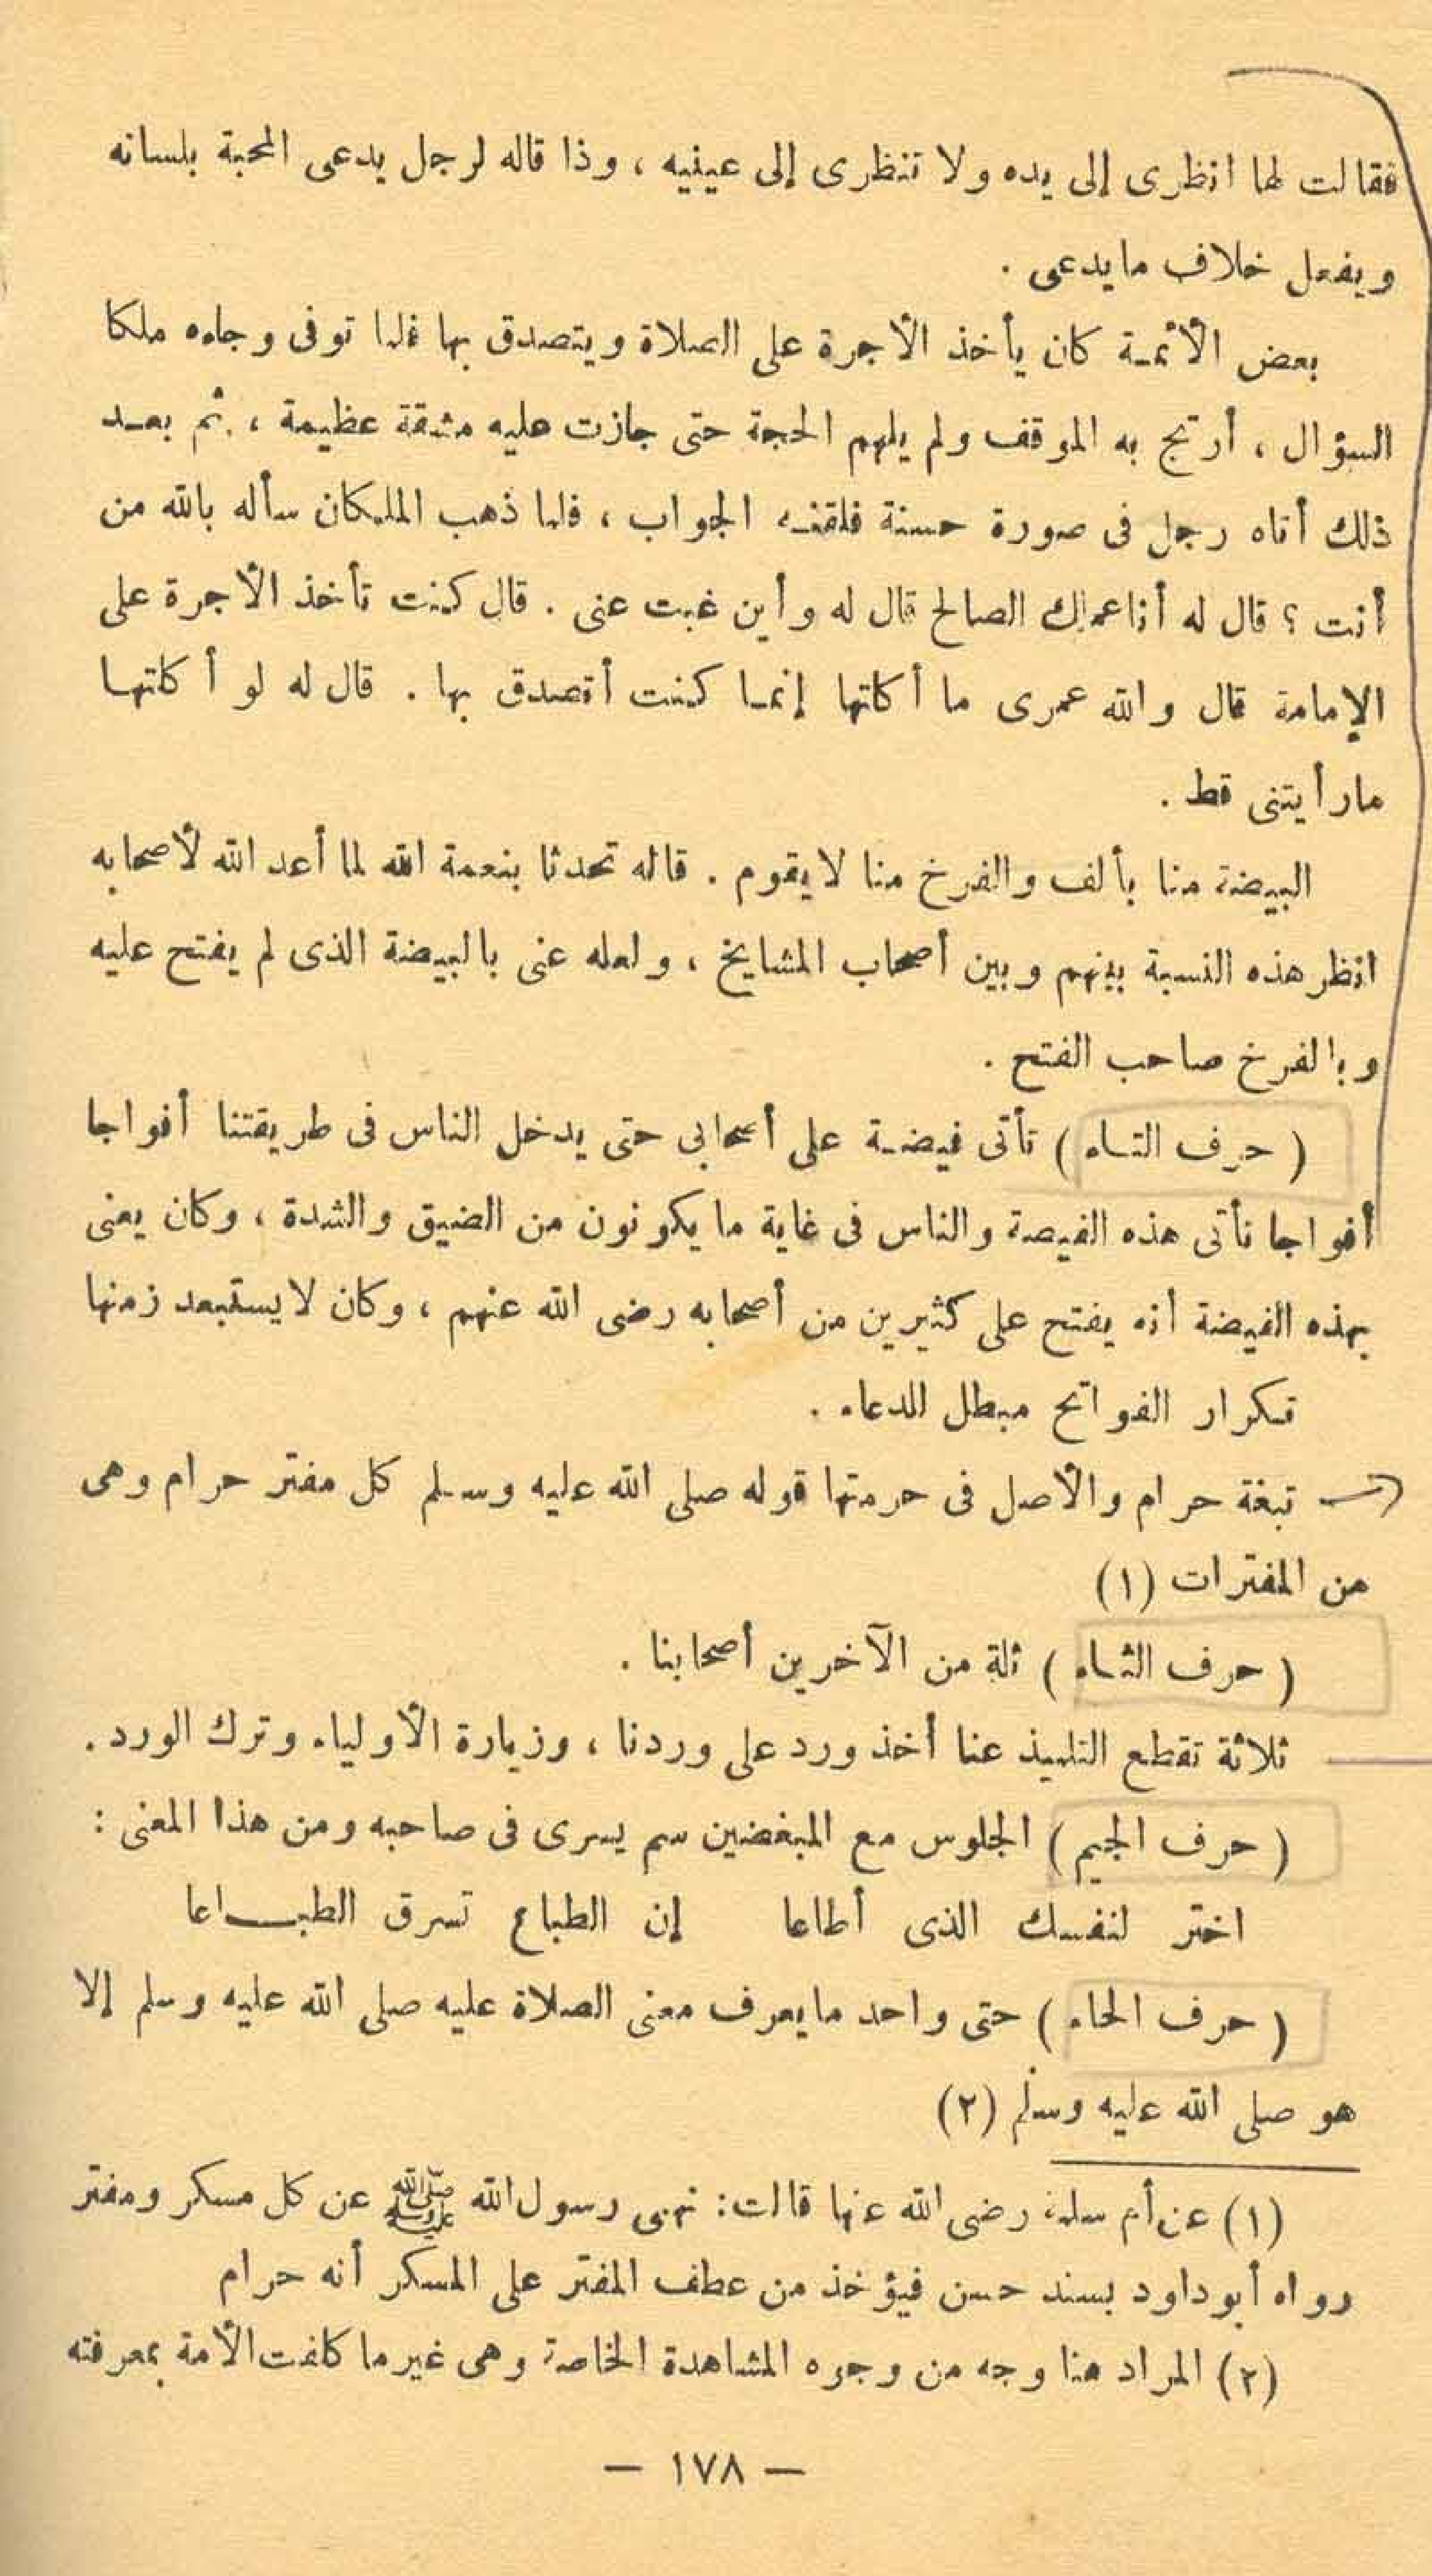 فقالت لها انظرى إلى يده ولا تنظرى إلى عينيه ، وذا قاله لرجل يدعى المحبة بلسانه
ويفعل خلاف مايدعى .
بعض الأئمة كان يأخذ الأجرة على الصلاة ويتصدق بها فلما توفى وجاءه ملكا
السؤال ، أرتج به الموقف ولم يلهم الحجة حتى جازت عليه مشقة عظيمة ، ثم بعد
ذلك أتاه رجل فى صورة حسنة فلقنه الجواب ، فلما ذهب الملكان سأله بالله من
أنت ؟ قال له أنا عملك الصالح قال له وأين غبت عنى . قال كنت تأخذ الأجرة على
الإمامة قال والله عمرى ما أكلتها إنما كنت أتصدق بها . قال له لو أكلتها
مارأيتنى قط .
البيضة منا بألف والفرخ منا لايقوم . قاله تحدثا بنعمة الله لما أعد الله لأصحابه
انظر هذه النسبة بينهم وبين أصحاب المشايخ ، ولعله عنى بالبيضة الذى لم يفتح عليه
وبالفرخ صاحب الفتح .
( حرف التاء ) تأتى فيضة على أصحابى حتى يدخل الناس فى طريقتنا أفواجا
أفواجا تأتى هذه الفيضة والناس فى غاية ما يكونون من الضيق والشدة ، وكان يعنى
بهذه الفيضة أنه يفتح على كثيرين من أصحابه رضى الله عنهم ، وكان لايستبعد زمنها
تكرار الفواتح مبطل للدعاء .
تبغة حرام والأصل فى حرمتها قوله صلى الله عليه وسلم كل مفتر حرام وهى
من المفترات (١)
( حرف الثاء ) ثلة من الآخرين أصحابنا .
ثلاثة تقطع التلميذ عنا أخذ ورد على وردنا ، وزيارة الأولياء وترك الورد .
( حرف الجيم ) الجلوس مع المبغضين سم يسرى فى صاحبه ومن هذا المعنى :
اختر لنفسك الذى أطاعا إن الطباع تسرق الطبـــاعا
( حرف الحاء ) حتى واحد مايعرف معنى الصلاة عليه صلى الله عليه وسلم إلا
هو صلى الله عليه وسلم (٢)
(١) عن أم سلمة رضى الله عنها قالت: نهى رسول الله ﷺ عن كل مسكر ومفتر
رواه أبو داود بسند حسن فيؤخذ من عطف المفتر على المسكر أنه حرام
(٢) المراد هنا وجه من وجوه المشاهدة الخاصة وهى غير ما كلفت الأمة بمعرفته
— ١٧٨ —